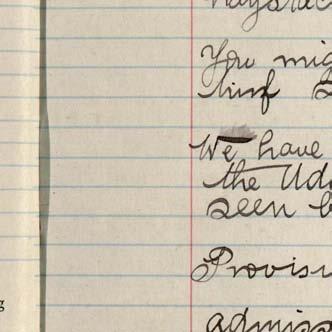 You mig
We have
the Ud
seen b
Provisi
admiss
g